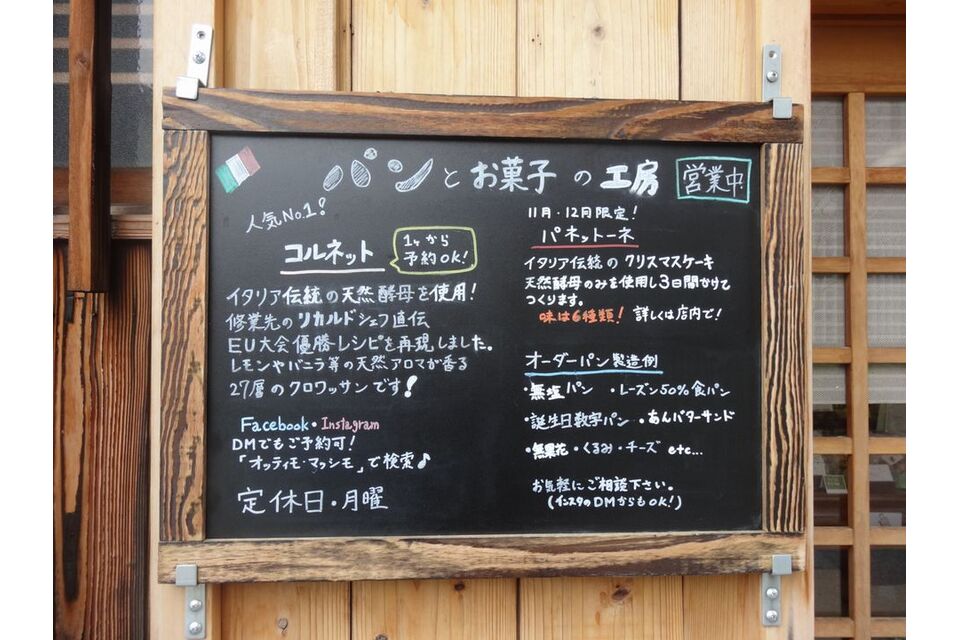 パンとお菓子の工房
営業中
人気No.1!
コルネット
1ヶから
予約OK!
イタリア伝統の天然酵母を使用!
修業先のリカルドシェフ直伝
EU大会優勝レシピを再現しました。
レモンやバニラ等の天然アロマが香る
27層のクロワッサンです!
Facebook・Instagram
DMでもご予約可!
「オッティモ・マッシモ」で検索♪
定休日・月曜
11月・12月限定!
パネットーネ
イタリア伝統のクリスマスケーキ
天然酵母のみを使用し3日間かけて
つくります。
味は6種類! 詳しくは店内で!
オーダーパン製造例
・無塩パン ・レーズン50%食パン
・誕生日数字パン ・あんバターサンド
・無果花・くるみ・チーズ etc...
お気軽にご相談下さい。
(インスタのDMからもOK!)